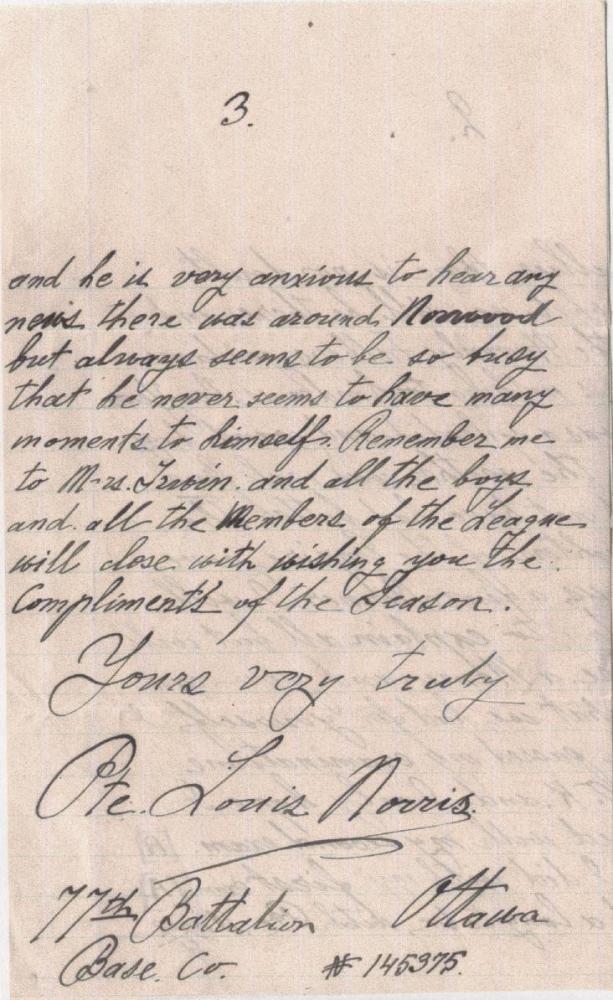 3.
and he is very anxious to hear any
news there was around Norwood
but always seems to be so busy
that he never seems to have many
moments to himself. Remember me
to Mrs. Irwin. and all the boys
and all the Members of the League
will close with wishing you the
Compliments of the Season.
Yours very truly
Pte. Louis Norris.
77th Battalion Ottawa
Base. Co. # 145375.